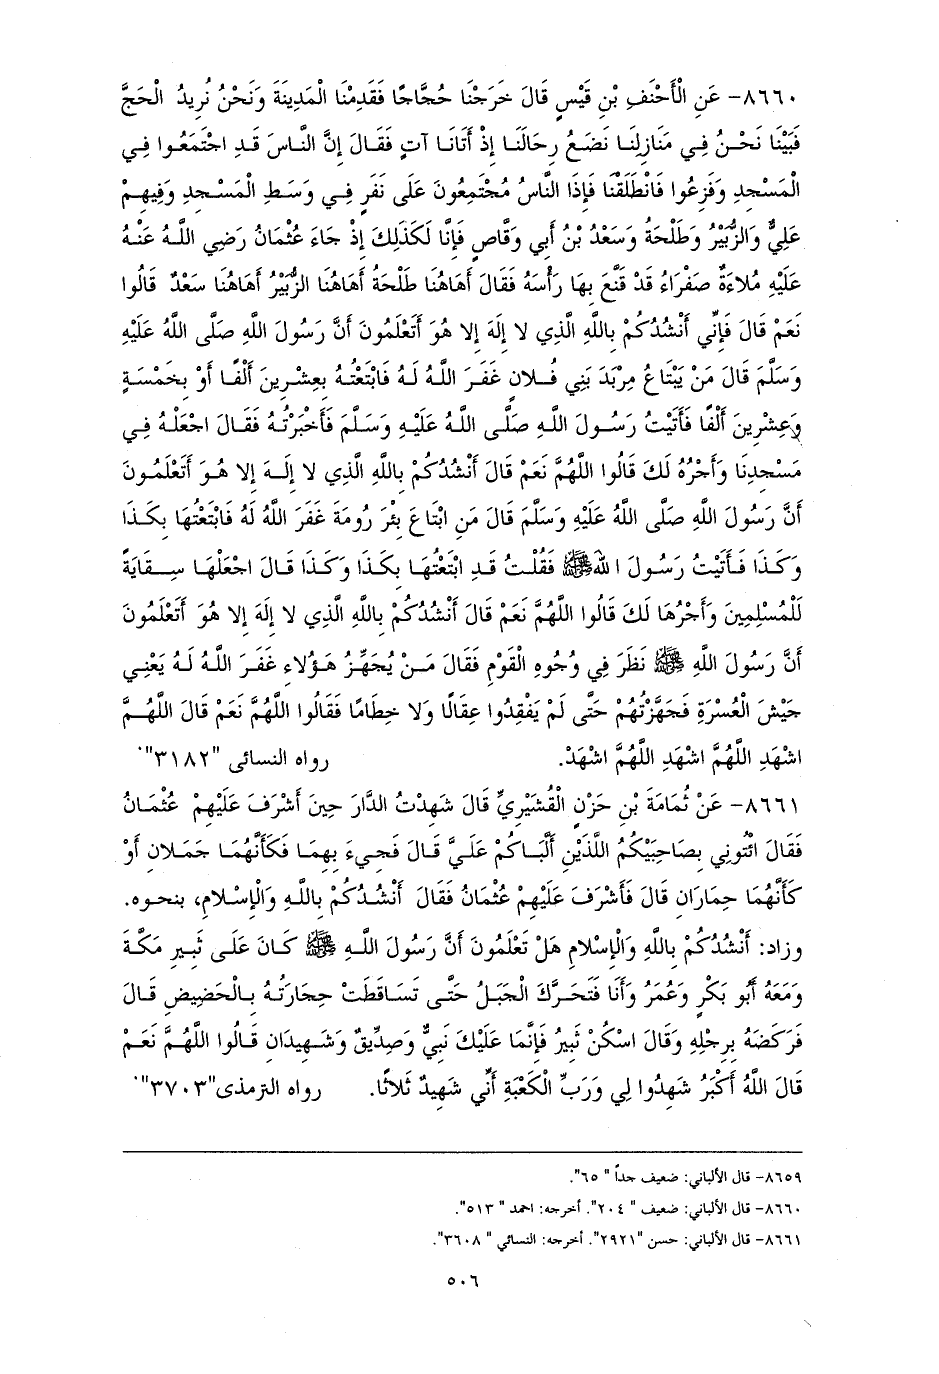 ٨٦٦٠- عَنِ الْأَحْنَفِ بْنِ قَيْسٍ قَالَ خَرَجْنَا حُجَّاجًا فَقَدِمْنَا الْمَدِينَةَ وَنَحْنُ نُرِيدُ الْحَجَّ
فَبَيْنَا نَحْنُ فِي مَنَازِلِنَا نَضَعُ رِحَالَنَا إِذْ أَتَانَا آتٍ فَقَالَ إِنَّ النَّاسَ قَدِ اجْتَمَعُوا فِي
الْمَسْجِدِ وَفَزِعُوا فَانْطَلَقْنَا فَإِذَا النَّاسُ مُجْتَمِعُونَ عَلَى نَفَرٍ فِي وَسَطِ الْمَسْجِدِ وَفِيهِمْ
عَلِيٌّ وَالزُّبَيْرُ وَطَلْحَةُ وَسَعْدُ بْنُ أَبِي وَقَّاصٍ فَإِنَّا لَكَذَلِكَ إِذْ جَاءَ عُثْمَانُ رَضِيَ اللَّهُ عَنْهُ
عَلَيْهِ مُلاءَةٌ صَفْرَاءُ قَدْ قَنَّعَ بِهَا رَأْسَهُ فَقَالَ أَهَاهُنَا طَلْحَةُ أَهَاهُنَا الزُّبَيْرُ أَهَاهُنَا سَعْدٌ قَالُوا
نَعَمْ قَالَ فَإِنِّي أَنْشُدُكُمْ بِاللَّهِ الَّذِي لا إِلَهَ إِلا هُوَ أَتَعْلَمُونَ أَنَّ رَسُولَ اللهِ صَلَّى اللَّهُ عَلَيْهِ
وَسَلَّمَ قَالَ مَنْ يَبْتَاعُ مِرْبَدَ بَنِي فُلانٍ غَفَرَ اللَّهُ لَهُ فَابْتَعْتُهُ بِعِشْرِينَ أَلْفًا أَوْ بِخَمْسَةٍ
وَعِشْرِينَ أَلْفًا فَأَتَيْتُ رَسُولَ اللهِ صَلَّى اللَّهُ عَلَيْهِ وَسَلَّمَ فَأَخْبَرْتُهُ فَقَالَ اجْعَلْهُ فِي
مَسْجِدِنَا وَأَجْرُهُ لَكَ قَالُوا اللَّهُمَّ نَعَمْ قَالَ أَنْشُدُكُمْ بِاللَّهِ الَّذِي لا إِلَهَ إِلا هُوَ أَتَعْلَمُونَ
أَنَّ رَسُولَ اللهِ صَلَّى اللَّهُ عَلَيْهِ وَسَلَّمَ قَالَ مَنِ ابْتَاعَ بِئْرَ رُومَةَ غَفَرَ اللَّهُ لَهُ فَابْتَعْتُهَا بِكَذَا
وَكَذَا فَأَتَيْتُ رَسُولَ اللهِ ﷺ فَقُلْتُ قَدِ ابْتَعْتُهَا بِكَذَا وَكَذَا قَالَ اجْعَلْهَا سِقَايَةً
لِلْمُسْلِمِينَ وَأَجْرُهَا لَكَ قَالُوا اللَّهُمَّ نَعَمْ قَالَ أَنْشُدُكُمْ بِاللَّهِ الَّذِي لا إِلَهَ إِلا هُوَ أَتَعْلَمُونَ
أَنَّ رَسُولَ اللهِ ﷺ نَظَرَ فِي وُجُوهِ الْقَوْمِ فَقَالَ مَنْ يُجَهِّزُ هَؤُلاءِ غَفَرَ اللَّهُ لَهُ يَعْنِي
جَيْشَ الْعُسْرَةِ فَجَهَّزْتُهُمْ حَتَّى لَمْ يَفْقِدُوا عِقَالًا وَلا خِطَامًا فَقَالُوا اللَّهُمَّ نَعَمْ قَالَ اللَّهُمَّ
اشْهَدِ اللَّهُمَّ اشْهَدِ اللَّهُمَّ اشْهَدْ. رواه النسائى "٣١٨٢".
٨٦٦١- عَنْ ثُمَامَةَ بْنِ حَزْنٍ الْقُشَيْرِيِّ قَالَ شَهِدْتُ الدَّارَ حِينَ أَشْرَفَ عَلَيْهِمْ عُثْمَانُ
فَقَالَ ائْتُونِي بِصَاحِبَيْكُمُ اللَّذَيْنِ أَلَّبَاكُمْ عَلَيَّ قَالَ فَجِيءَ بِهِمَا فَكَأَنَّهُمَا جَمَلانِ أَوْ
كَأَنَّهُمَا حِمَارَانِ قَالَ فَأَشْرَفَ عَلَيْهِمْ عُثْمَانُ فَقَالَ أَنْشُدُكُمْ بِاللَّهِ وَالْإِسْلامِ، بنحوه.
وزاد: أَنْشُدُكُمْ بِاللَّهِ وَالْإِسْلامِ هَلْ تَعْلَمُونَ أَنَّ رَسُولَ اللهِ ﷺ كَانَ عَلَى ثَبِيرِ مَكَّةَ
وَمَعَهُ أَبُو بَكْرٍ وَعُمَرُ وَأَنَا فَتَحَرَّكَ الْجَبَلُ حَتَّى تَسَاقَطَتْ حِجَارَتُهُ بِالْحَضِيضِ قَالَ
فَرَكَضَهُ بِرِجْلِهِ وَقَالَ اسْكُنْ ثَبِيرُ فَإِنَّمَا عَلَيْكَ نَبِيٌّ وَصِدِّيقٌ وَشَهِيدَانِ قَالُوا اللَّهُمَّ نَعَمْ
قَالَ اللَّهُ أَكْبَرُ شَهِدُوا لِي وَرَبِّ الْكَعْبَةِ أَنِّي شَهِيدٌ ثَلاثًا. رواه الترمذى"٣٧٠٣".
٨٦٥٩- قال الألباني: ضعيف جداً " ٦٥".
٨٦٦٠- قال الألباني: ضعيف " ٢٠٤". أخرجه: احمد " ٥١٣".
٨٦٦١- قال الألباني: حسن "٢٩٢١". أخرجه: النسائي " ٣٦٠٨".
٥٠٦